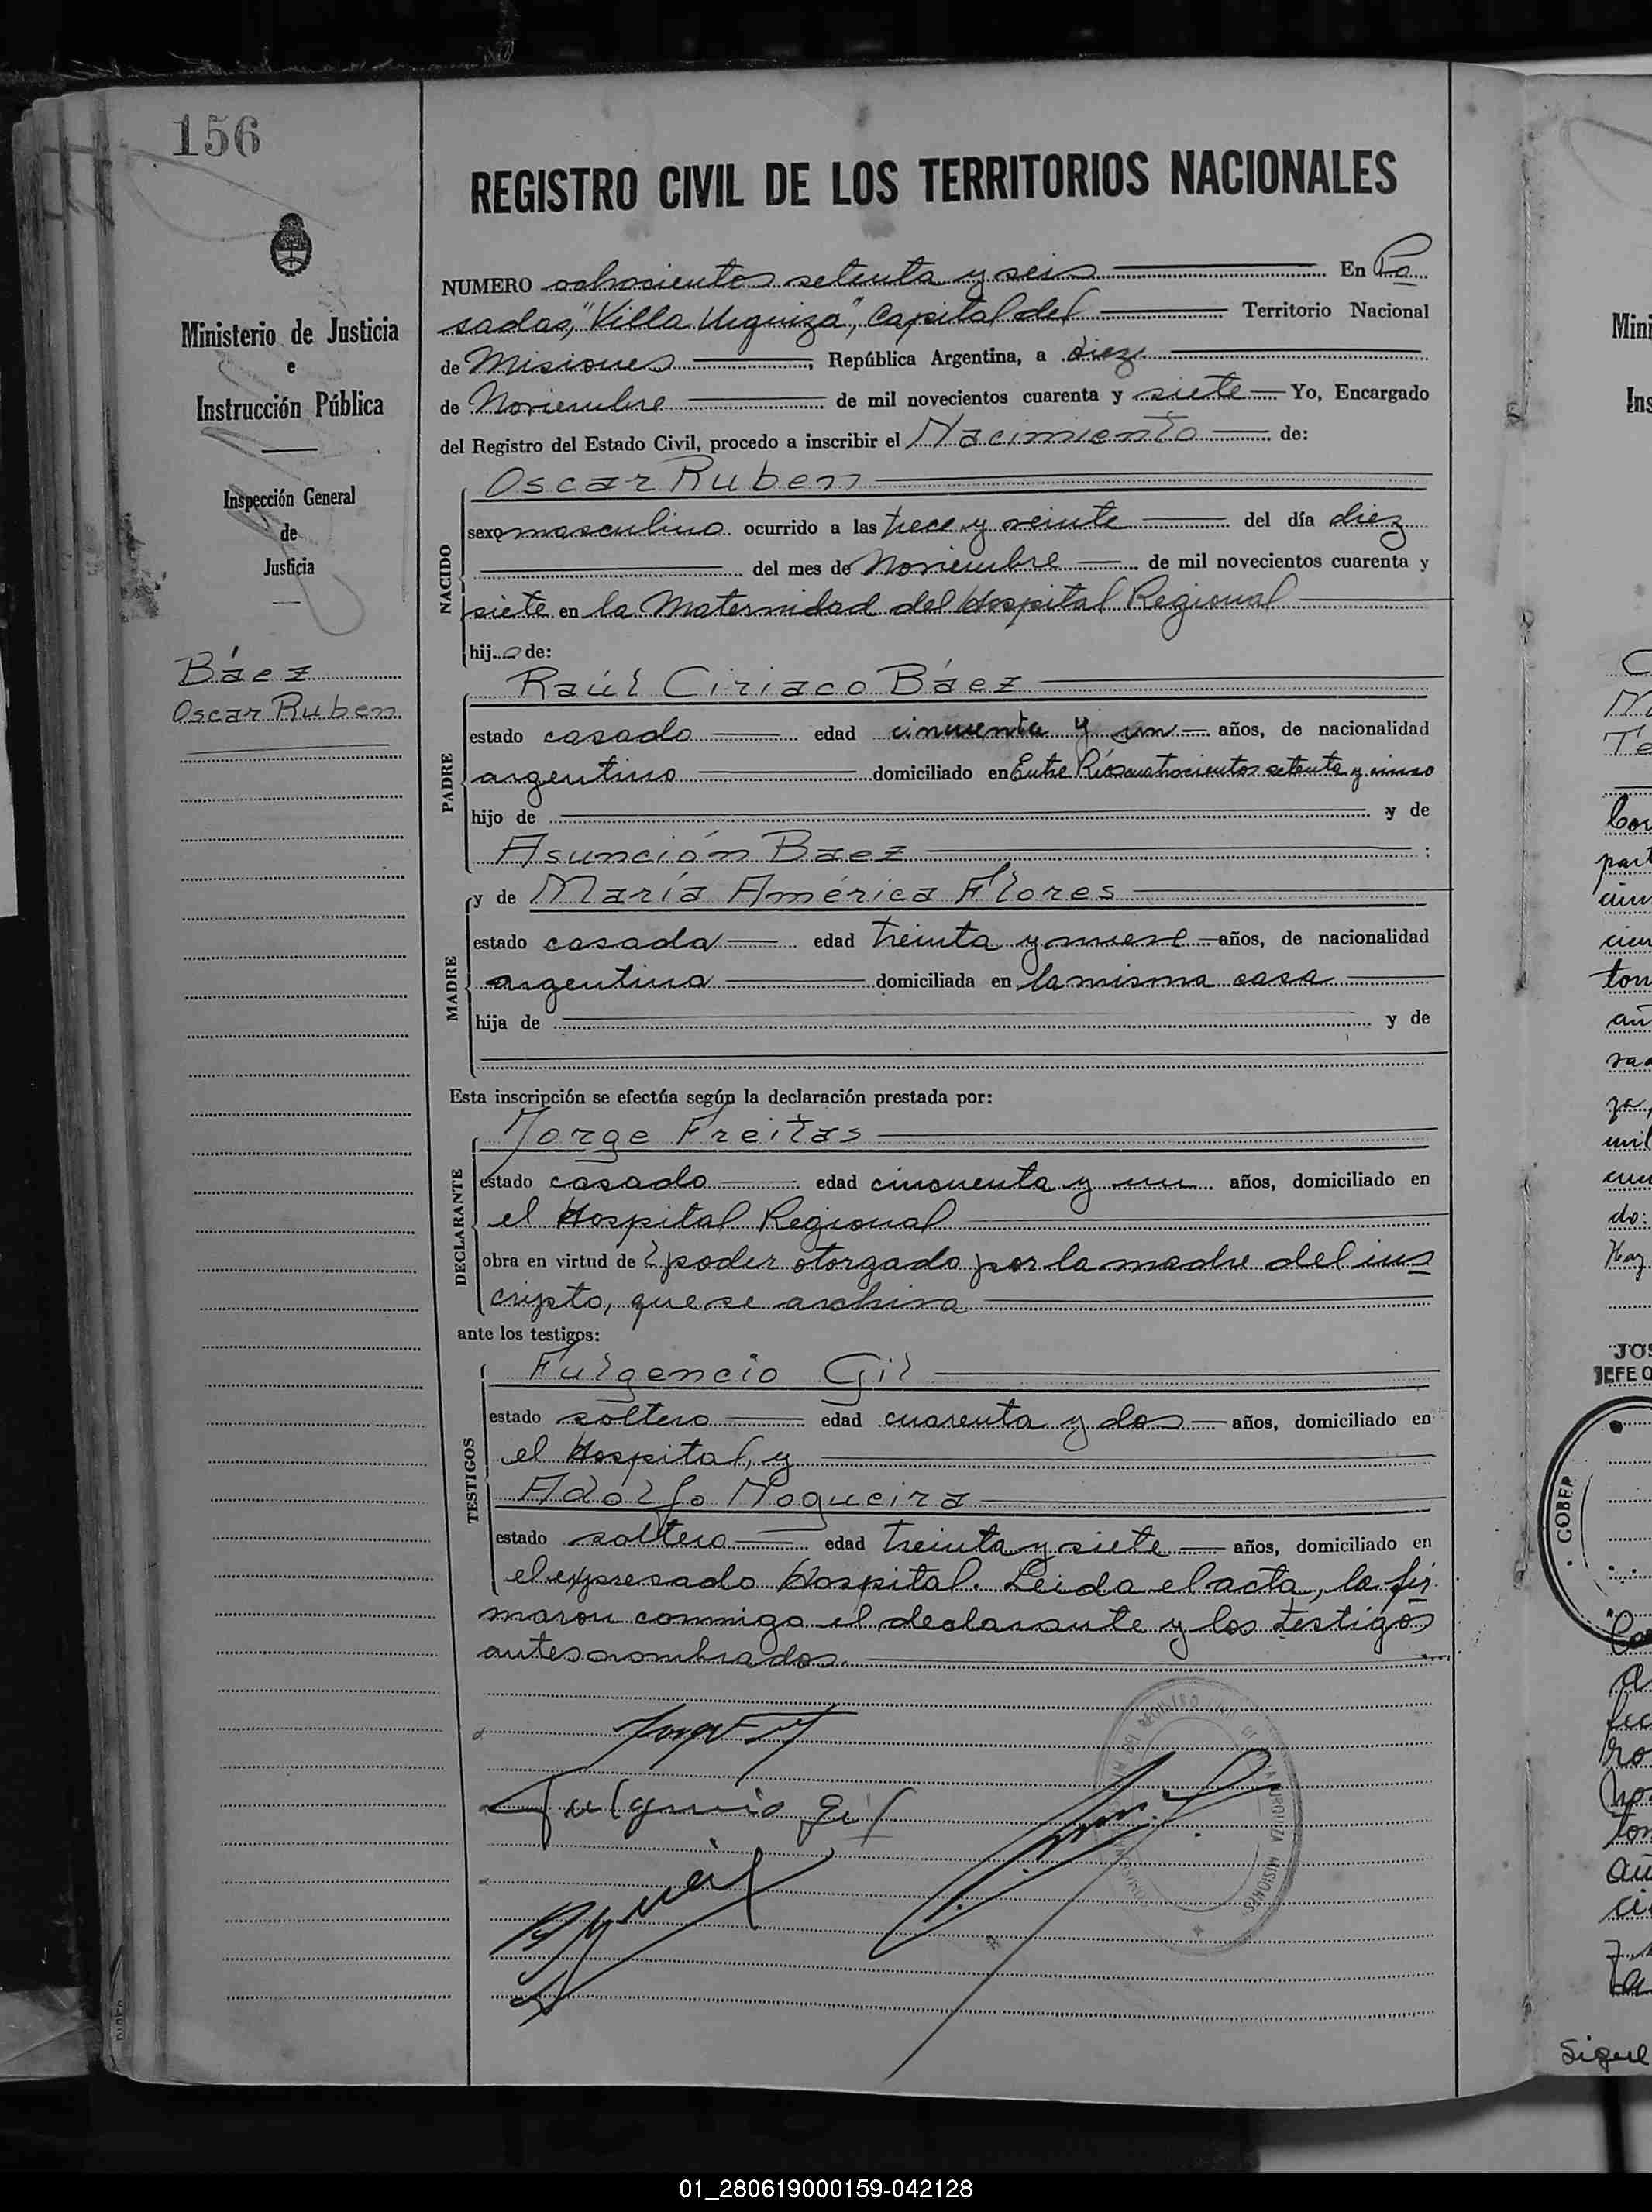 156
REGISTRO CIVIL DE LOS TERRITORIOS NACIONALES
Ministerio de Justicia
e
Instrucción Pública
Inspección General
de
Justicia
Báez
Oscar Ruben
NUMERO ochocientos setenta y seis En Po
sadas, "Villa Urquiza", Capital del Territorio Nacional
de Misiones, República Argentina, a diez
de Noviembre de mil novecientos cuarenta y siete Yo, Encargado
del Registro del Estado Civil, procedo a inscribir el Nacimiento de:
NACIDO
Oscar Ruben
sexo masculino ocurrido a las trece y veinte del día diez
del mes de Noviembre de mil novecientos cuarenta y
siete en la Maternidad del Hospital Regional
hijo de:
PADRE
Raúl Ciriaco Báez
estado casado edad cincuenta y un años, de nacionalidad
argentino domiciliado en Entre Ríos cuatrocientos setenta y cinco
hijo de y de
Asunción Baez :
MADRE
y de María América Flores
estado casada edad treinta y nueve años, de nacionalidad
argentina domiciliada en la misma casa
hija de y de
Esta inscripción se efectúa según la declaración prestada por:
DECLARANTE
Jorge Freitas
estado casado edad cincuenta y un años, domiciliado en
el Hospital Regional
obra en virtud de poder otorgado por la madre del ins
cripto, que se archiva
ante los testigos:
TESTIGOS
Fulgencio Gil
estado soltero edad cuarenta y dos años, domiciliado en
el Hospital, y
Adolfo Nogueira
estado soltero edad treinta y siete años, domiciliado en
el expresado Hospital. Leida el acta, la fir
maron conmigo el declarante y los testigos
antes nombrados.
Fulgencio Gil
REGISTRO
URQUIZA MISIONES
JOS
JEFE O
GOBER
Sigue
01_280619000159-042128